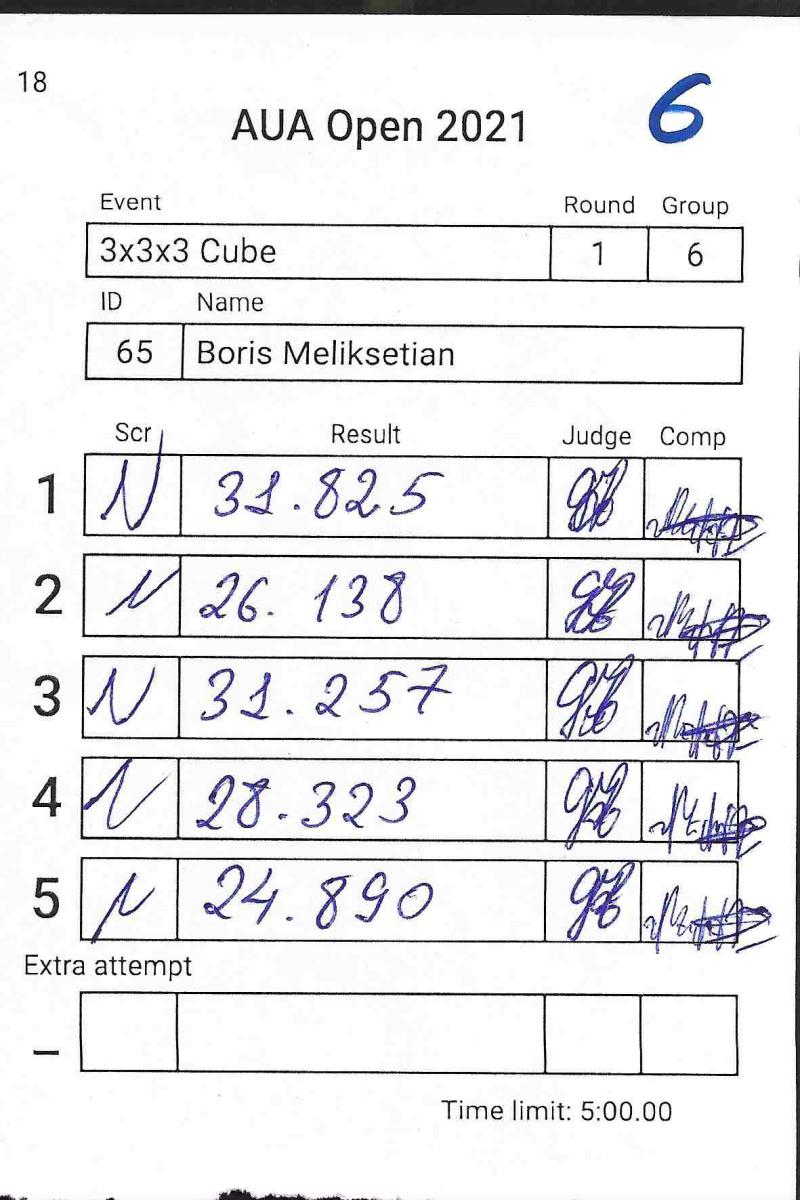 18
AUA Open 2021 6
Event Round Group
3x3x3 Cube 1 6
ID Name
65 Boris Meliksetian
Scr Result Judge Comp
1 N 31.825
2 N 26.138
3 N 31.257
4 N 28.323
5 N 24.890
Extra attempt
–
Time limit: 5:00.00